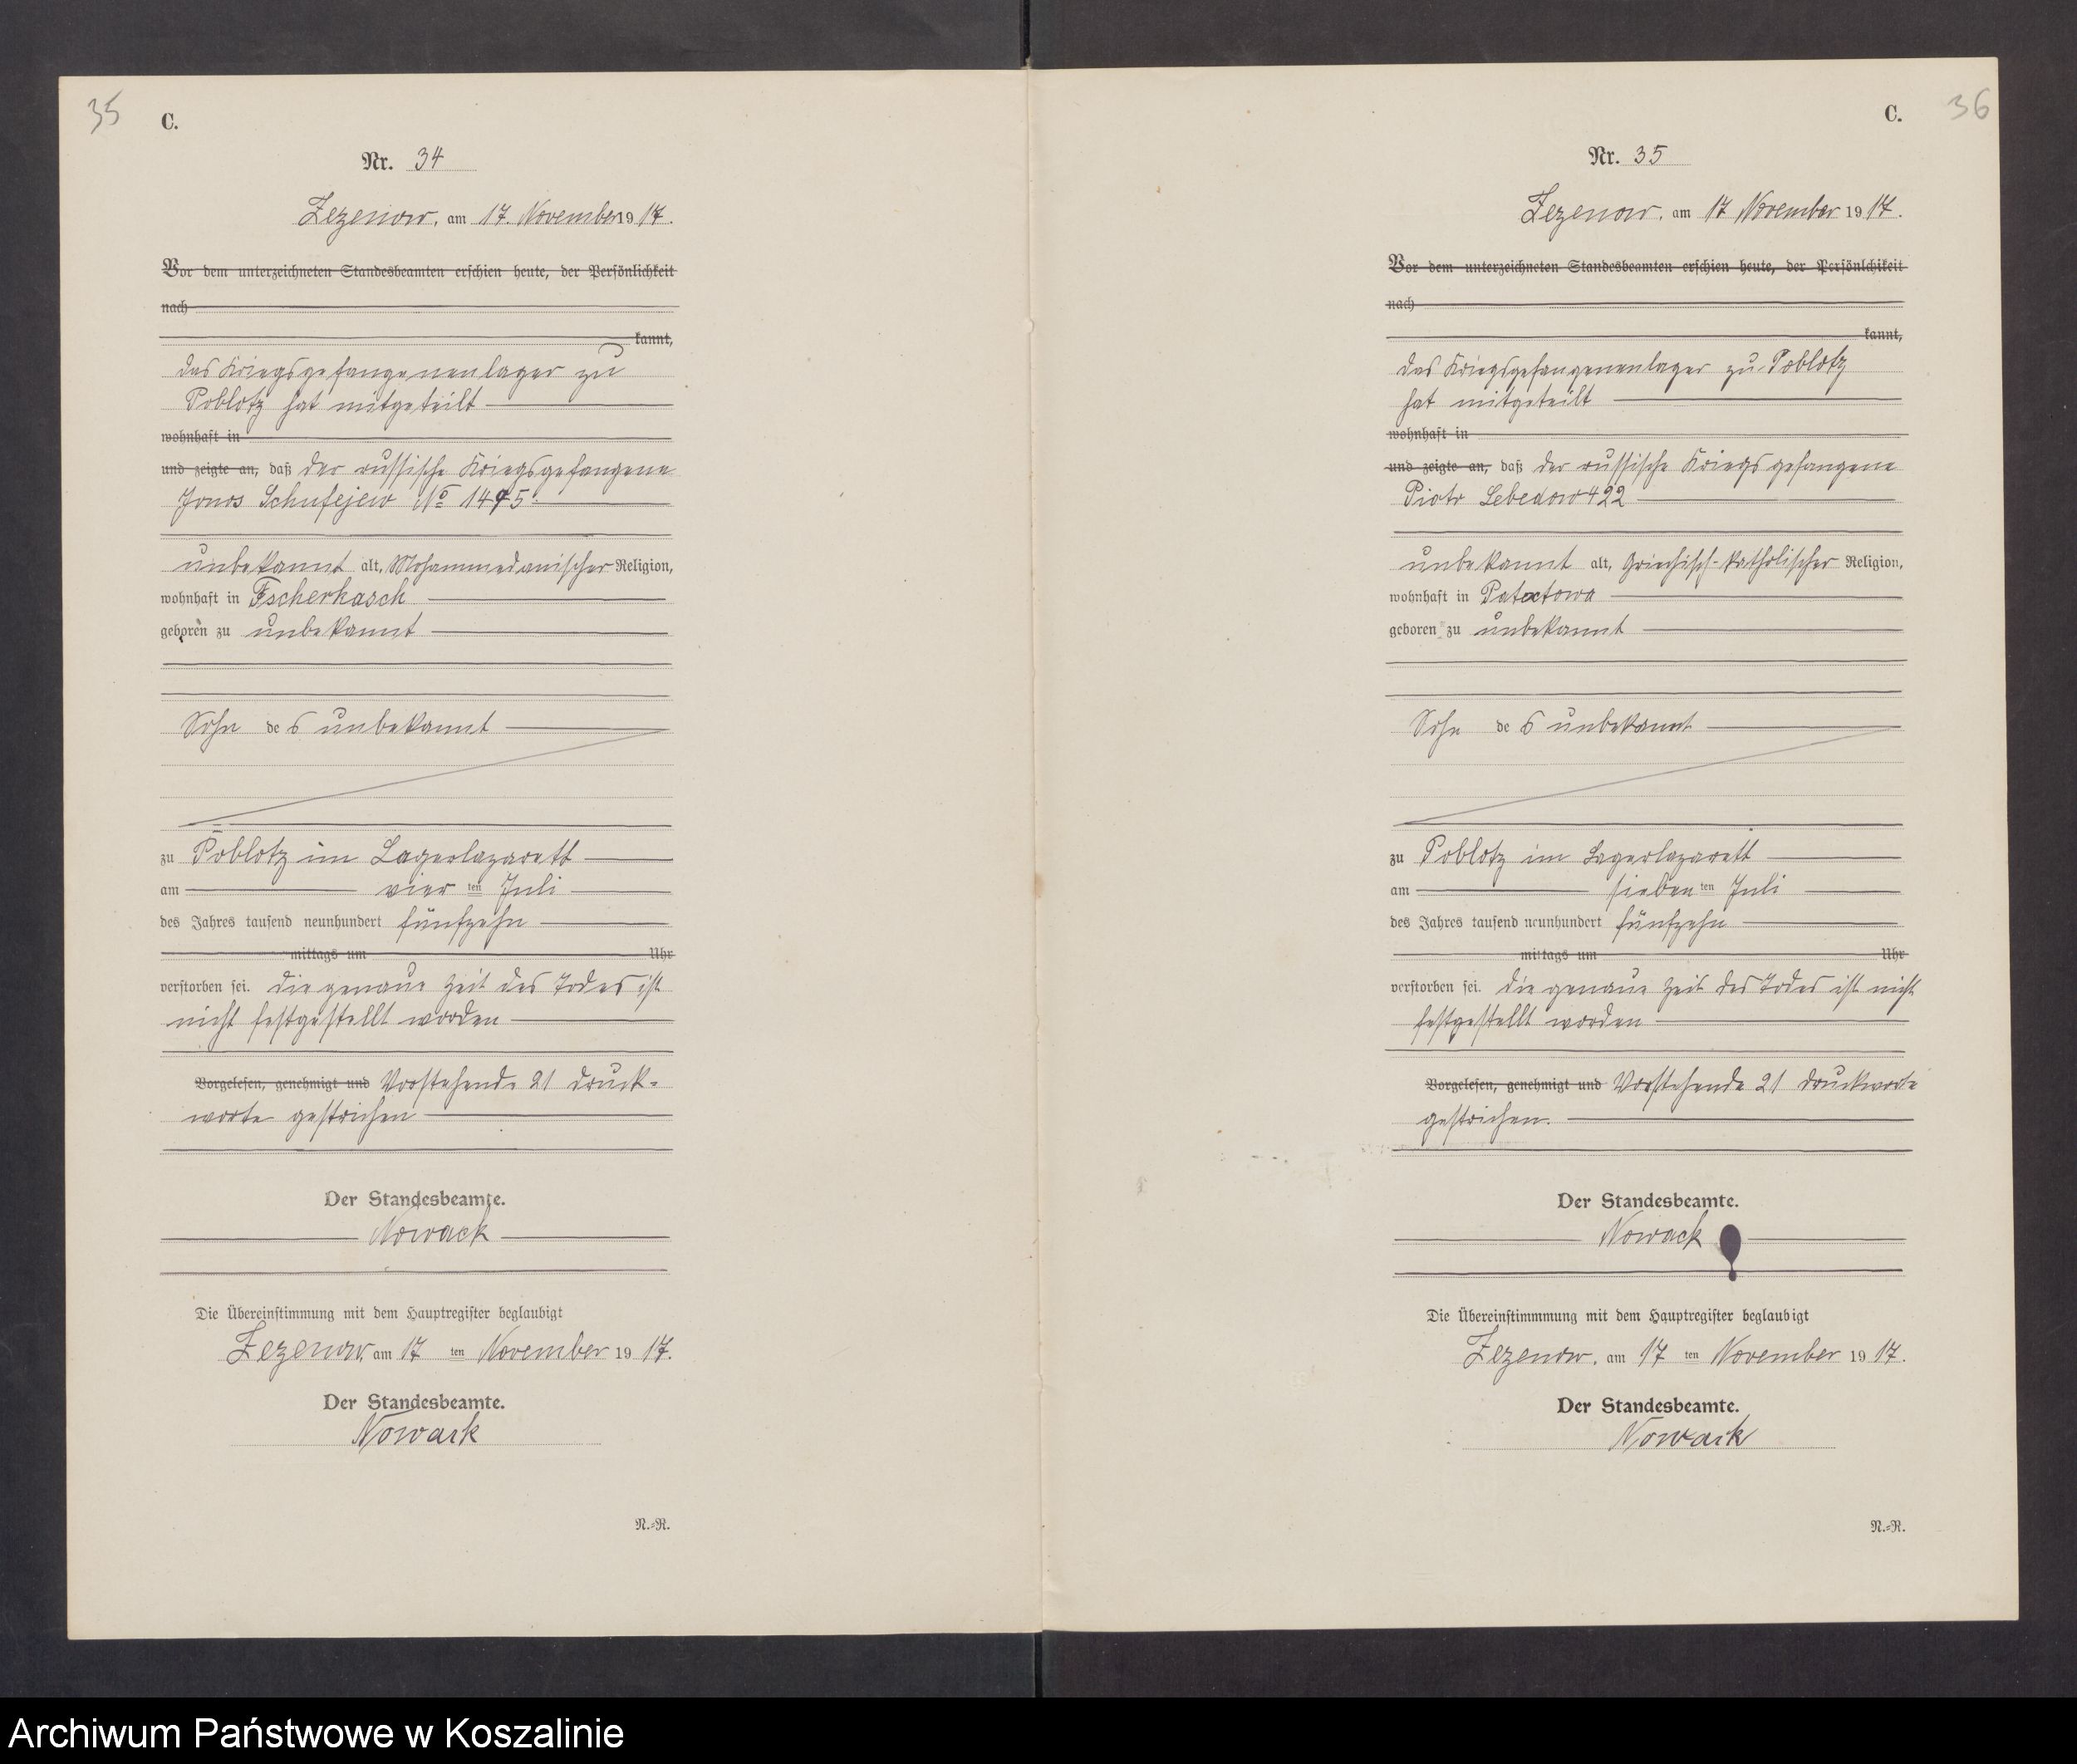 35
C.
Nr. 34
Zezenow, am 17. November 1917.
Vor dem unterzeichneten Standesbeamten erschien heute, der Persönlichkeit
nach
kannt,
das Kriegsgefangenenlager zu
Poblotz hat mitgeteilt
wohnhaft in
und zeigte an, daß der russische Kriegsgefangene
Jonos Schufejew No 1495.
unbekannt alt, Mohammedanischer Religion,
wohnhaft in Tscherkasch
geboren zu unbekannt
Sohn des unbekannt
zu Poblotz im Lagerlazarett
am vier ten Juli
des Jahres tausend neunhundert fünfzehn
mittags um Uhr
verstorben sei. Die genaue Zeit des Todes ist
nicht festgestellt worden
Vorgelesen, genehmigt und Vorstehende 21 Druck-
worte gestrichen
Der Standesbeamte.
Nowack
Die Übereinstimmung mit dem Hauptregister beglaubigt
Zezenow, am 17 ten November 1917.
Der Standesbeamte.
Nowack
N.=R.
C.
36
Nr. 35
Zezenow, am 17 November 1917.
Vor dem unterzeichneten Standesbeamten erschien heute, der Persönlchikeit
nach
kannt,
das Kriegsgefangenenlager zu Poblotz
hat mitgeteilt
wohnhaft in
und zeigte an, daß der russische Kriegsgefangene
Piotr Lebedow 422
unbekannt alt, Griechisch-katholischer Religion,
wohnhaft in Patatowa
geboren zu unbekannt
Sohn des unbekannt
zu Poblotz im Lagerlazarett
am sieben ten Juli
des Jahres tausend neunhundert fünfzehn
mittags um Uhr
verstorben sei. Die genaue Zeit des Todes ist nicht
festgestellt worden
Vorgelesen, genehmigt und Vorstehende 21 Druckworte
gestrichen.
Der Standesbeamte.
Nowack
Die Übereinstimmmung mit dem Hauptregister beglaubigt
Zezenow, am 17 ten November 1917.
Der Standesbeamte.
Nowack
N.=R.
Archiwum Państwowe w Koszalinie